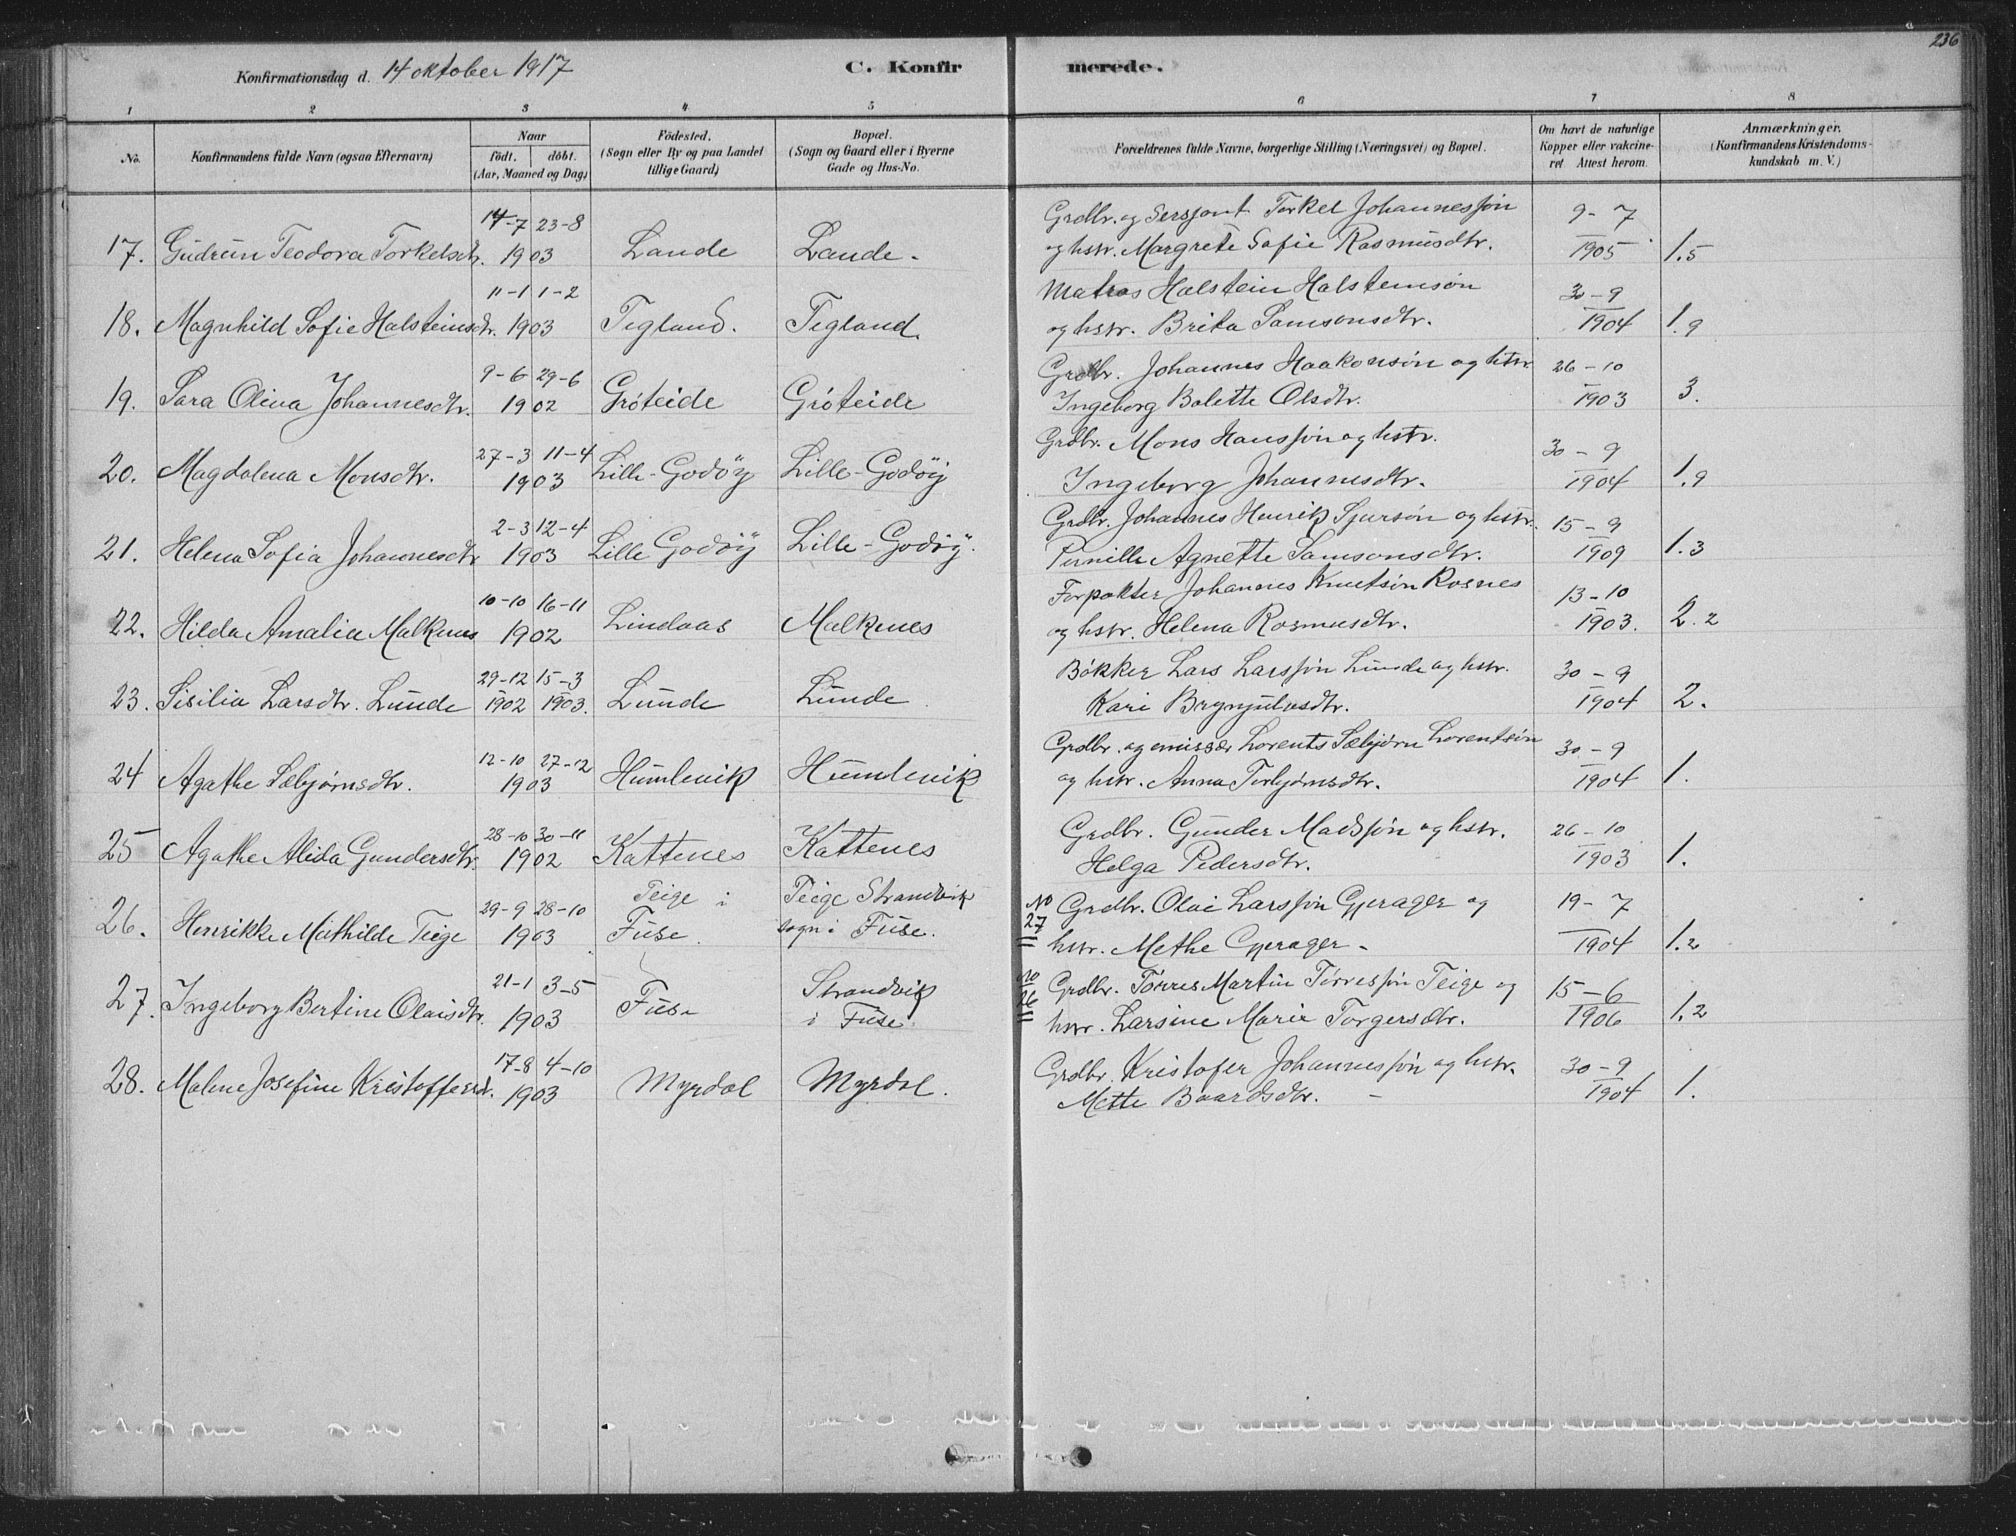 236
Konfirmationsdag d. 14 oktober 1917
C. Konfirmerede.
1 2 3 4 5 6 7 8
No.
Konfirmandens fulde Navn (ogsaa Efternavn)
Naar
födt. döbt.
(Aar, Maaned og Dag)
Födested.
(Sogn eller By og paa Landet
tillige Gaard)
Bopæl.
(Sogn og Gaard eller i Byerne
Gade og Hus-No.
Forældrenes fulde Navne, borgerlige Stilling (Næringsvei) og Bopæl.
Om havt de naturlige
Kopper eller vakcine-
ret. Attest herom.
Anmærkninger.
(Konfirmandens Kristendoms-
kundskab m. V.)
14-7 23-8 Grdbr. og Sersjant Torkel Johannessøn 9-7
17. Gudrun Teodora Torkelsdtr. 1903 Lande Lande. og hstr. Margrete Sofie Rasmusdtr. 1905 1.5
11-1 1-2 Matros Halstein Halsteinsøn 30-9
18. Magnhild Sofie Halsteinsdtr. 1903 Tegland. Tegland. og hstr. Brita Samsonsdtr. 1904 1.9
9-6 29-6 Grdbr. Johannes Haakonsøn og hstr. 26-10
19. Sara Olina Johannesdtr. 1902 Gröteide Gröteide Ingeborg Bolette Olsdtr. 1903 3.
27-3 11-4 Grdbr. Mons Hanssøn og hstr. 30-9
20. Magdalena Monsdtr. 1903 Lille-Godöÿ Lille-Godöÿ Ingeborg Johannesdtr. 1904 1.9
2-3 12-4 Grdbr. Johannes Henrik Sjursøn og hstr. 15-9
21. Helena Sofia Johannesdtr 1903 Lille Godöÿ Lille-Godöÿ. Pernille Agnette Samsonsdtr. 1909 1.3
10-10 16-11 Forpakter Johannes Knutsøn Rosnes 13-10
22. Hilda Amalia Malkenes 1902 Lindaas Malkenes og hstr. Helena Rasmusdtr. 1903. 2.2
29-12 15-3 Bøkker Lars Larssøn Lunde og hstr. 30-9
23. Sisilia Larsdtr. Lunde 1902 1903. Lunde Lunde Kari Brynjulvsdtr. 1904 2.
12-10 27-12 Grdbr. og emissær Lorents Sæbjørn Lorentsøn 30-9
24 Agathe Sæbjørnsdtr. 1903 Humlevik Humlevik og hstr. Anna Torbjørnsdtr. 1904 1.
28-10 30-11 Grdbr. Gunder Madssøn og hstr. 26-10
25 Agathe Alida Gundersdtr. 1902 Kattenes Kattenes Helga Pedersdtr. 1903 1.
29-9 28-10 Teige i Teige Strandvik No Grdbr. Olai Larssøn Gjerager og 19-7
26. Henrikke Mathilde Teige 1903 Fuse. sogn i Fuse. 27 hstr. Methe Gjerager. 1904 1.2
21-1 3-5 Strandvik No Grdbr. Tørres Martin Tørressøn Teige og 15-6
27. Ingeborg Bertine Olaisdtr. 1903 Fuse i Fuse. 26 hstr. Larsine Marie Torgersdtr. 1906 1.2
17-8 4-10 Grdbr. Kristofer Johannessøn og hstr. 30-9
28. Malene Josefine Kristoffersd. 1903 Myrdal Myrdal. Mette Baardsdtr. 1904 1.